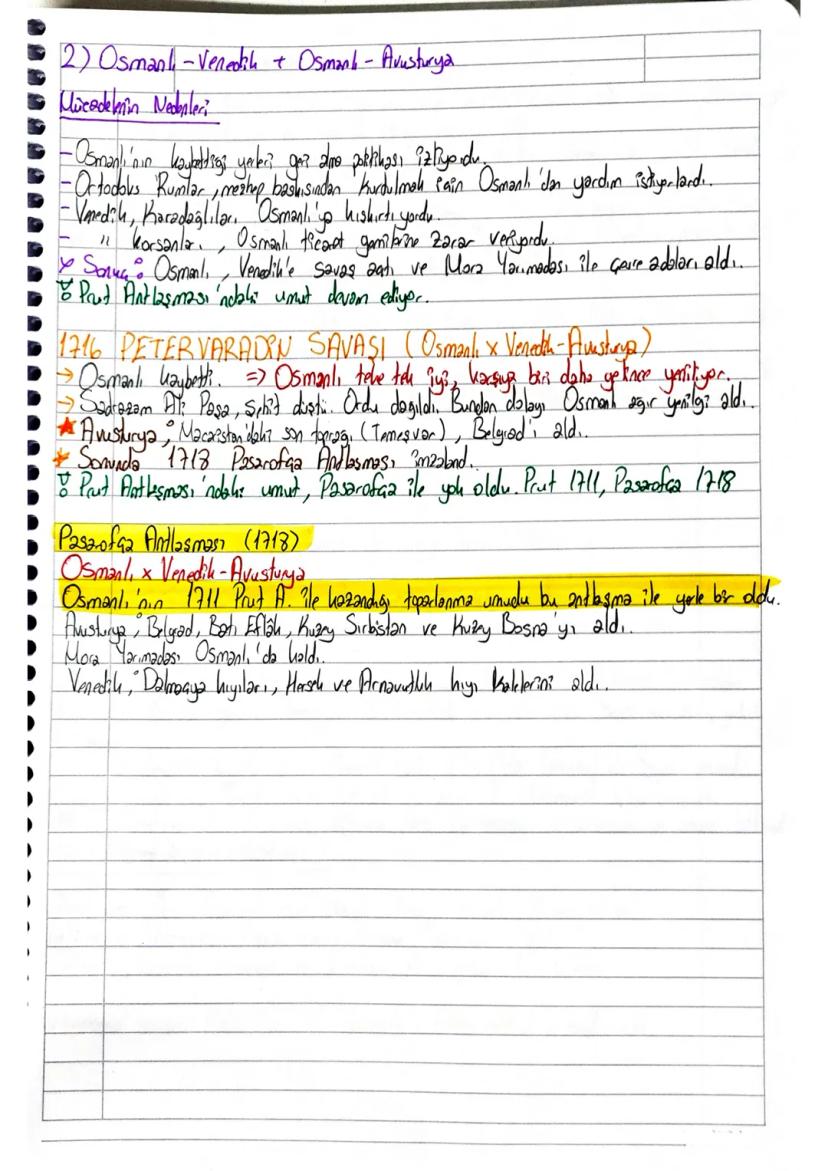 2) Osmanlı - Venedik + Osmanlı - Avusturya
Mücadelenin Nedenleri
- Osmanlı'nın kaybettiği yerleri geri alma politikası izliyordu.
- Ortodoks Rumlar, mezhep baskısından kurdulmak için Osmanlı'dan yardım istiyorlardı.
- Venedik, Karadağlıları Osmanlı'ya kışkırtıyordu.
- " korsanları, Osmanlı ticaret gemilerine zarar veriyordu.
Sonuç: Osmanlı, Venedik'e savaş açtı ve Mora Yarımadası ile çevre adaları aldı.
Prut Antlaşması'ndaki umut devam ediyor.
1716 PETERVARADİN SAVAŞI (Osmanlı x Venedik-Avusturya)
→ Osmanlı kaybetti. => Osmanlı teke tek iyi, karşıya biri daha gelince yeniliyor.
→ Sadrazam Ali Paşa, şehit düştü. Ordu dağıldı. Bundan dolayı Osmanlı ağır yenilgi aldı.
★ Avusturya; Macaristan'daki son toprağı (Temeşvar), Belgrad'ı aldı.
★ Sonunda 1718 Pasarofça Antlaşması imzalandı.
Prut Antlaşması'ndaki umut, Pasarofça ile yok oldu. Prut 1711, Pasarofça 1718
Pasarofça Antlaşması (1718)
Osmanlı x Venedik-Avusturya
Osmanlı'nın 1711 Prut A. ile kazandığı toparlanma umudu bu antlaşma ile yerle bir oldu.
Avusturya; Belgrad, Batı Eflak, Kuzey Sırbistan ve Kuzey Bosna'yı aldı.
Mora Yarımadası Osmanlı'da kaldı.
Venedik; Dalmaçya kıyıları, Hersek ve Arnavutluk kıyı kalelerini aldı.